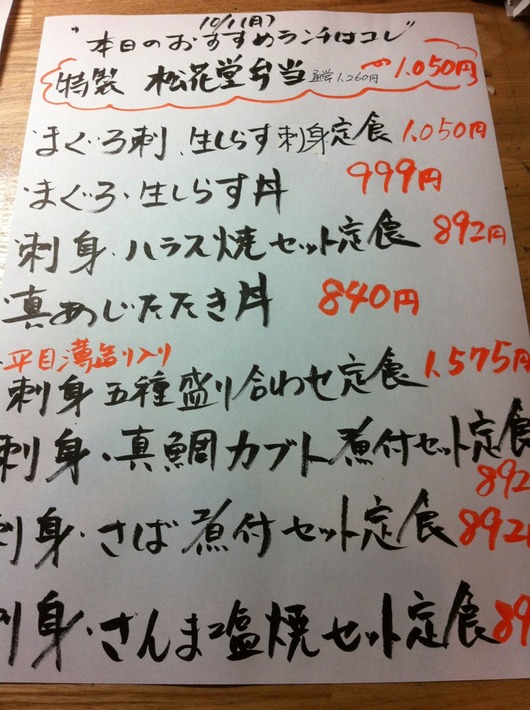 10/1(月)
"本日のおすすめランチはコレ"
特製 松花堂弁当 通常1,260円 〜1,050円
・まぐろ刺、生しらす刺身定食 1,050円
・まぐろ・生しらす丼 999円
・刺身・ハラス焼セット定食 892円
・真あじたたき丼 840円
・平目薄造り入り
刺身五種盛り合わせ定食 1,575円
刺身・真鯛カブト煮付セット定食
892
刺身・さば煮付セット定食 892円
刺身・さんま塩焼セット定食 89